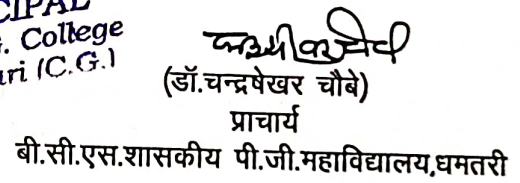 CIPAL
. College
ri (C.G.)
(डॉ.चन्द्रषेखर चौबे)
प्राचार्य
बी.सी.एस.शासकीय पी.जी.महाविद्यालय,धमतरी